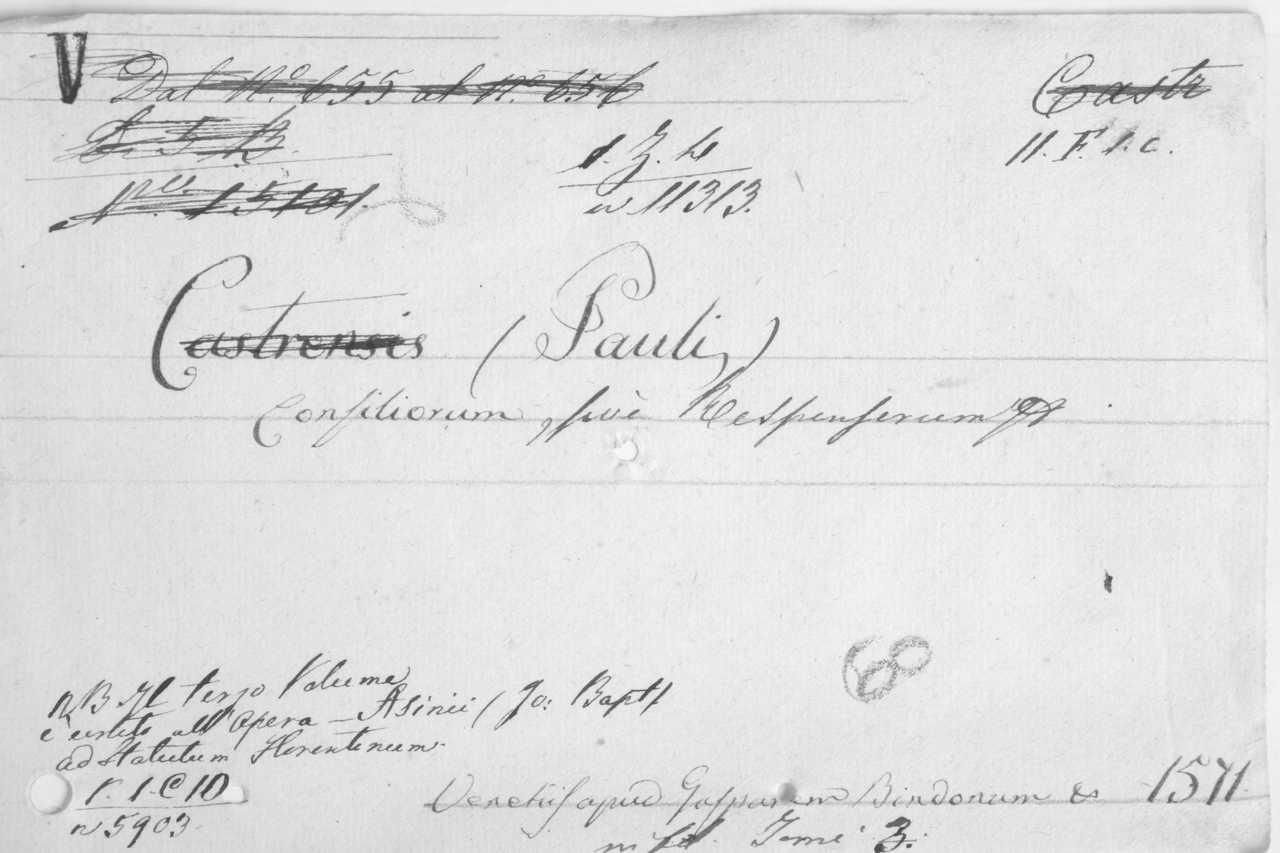 V
Dal N.º 655 al N.º 656
Castr
E. 5. B.
1. Z. 4
11. F. 1. c.
15101.
n 11313.
Castrensis (Pauli)
Consiliorum, sivè Responsorum
60
NB Il terzo Volume
è unito all'Opera - Asinii (Jo: Bapt)
ad Statutum Florentinum.
V. 1. C 10
n 5903.
Venetiis apud Gasparem Bindonum &c 1571
in fol. Tomi 3.